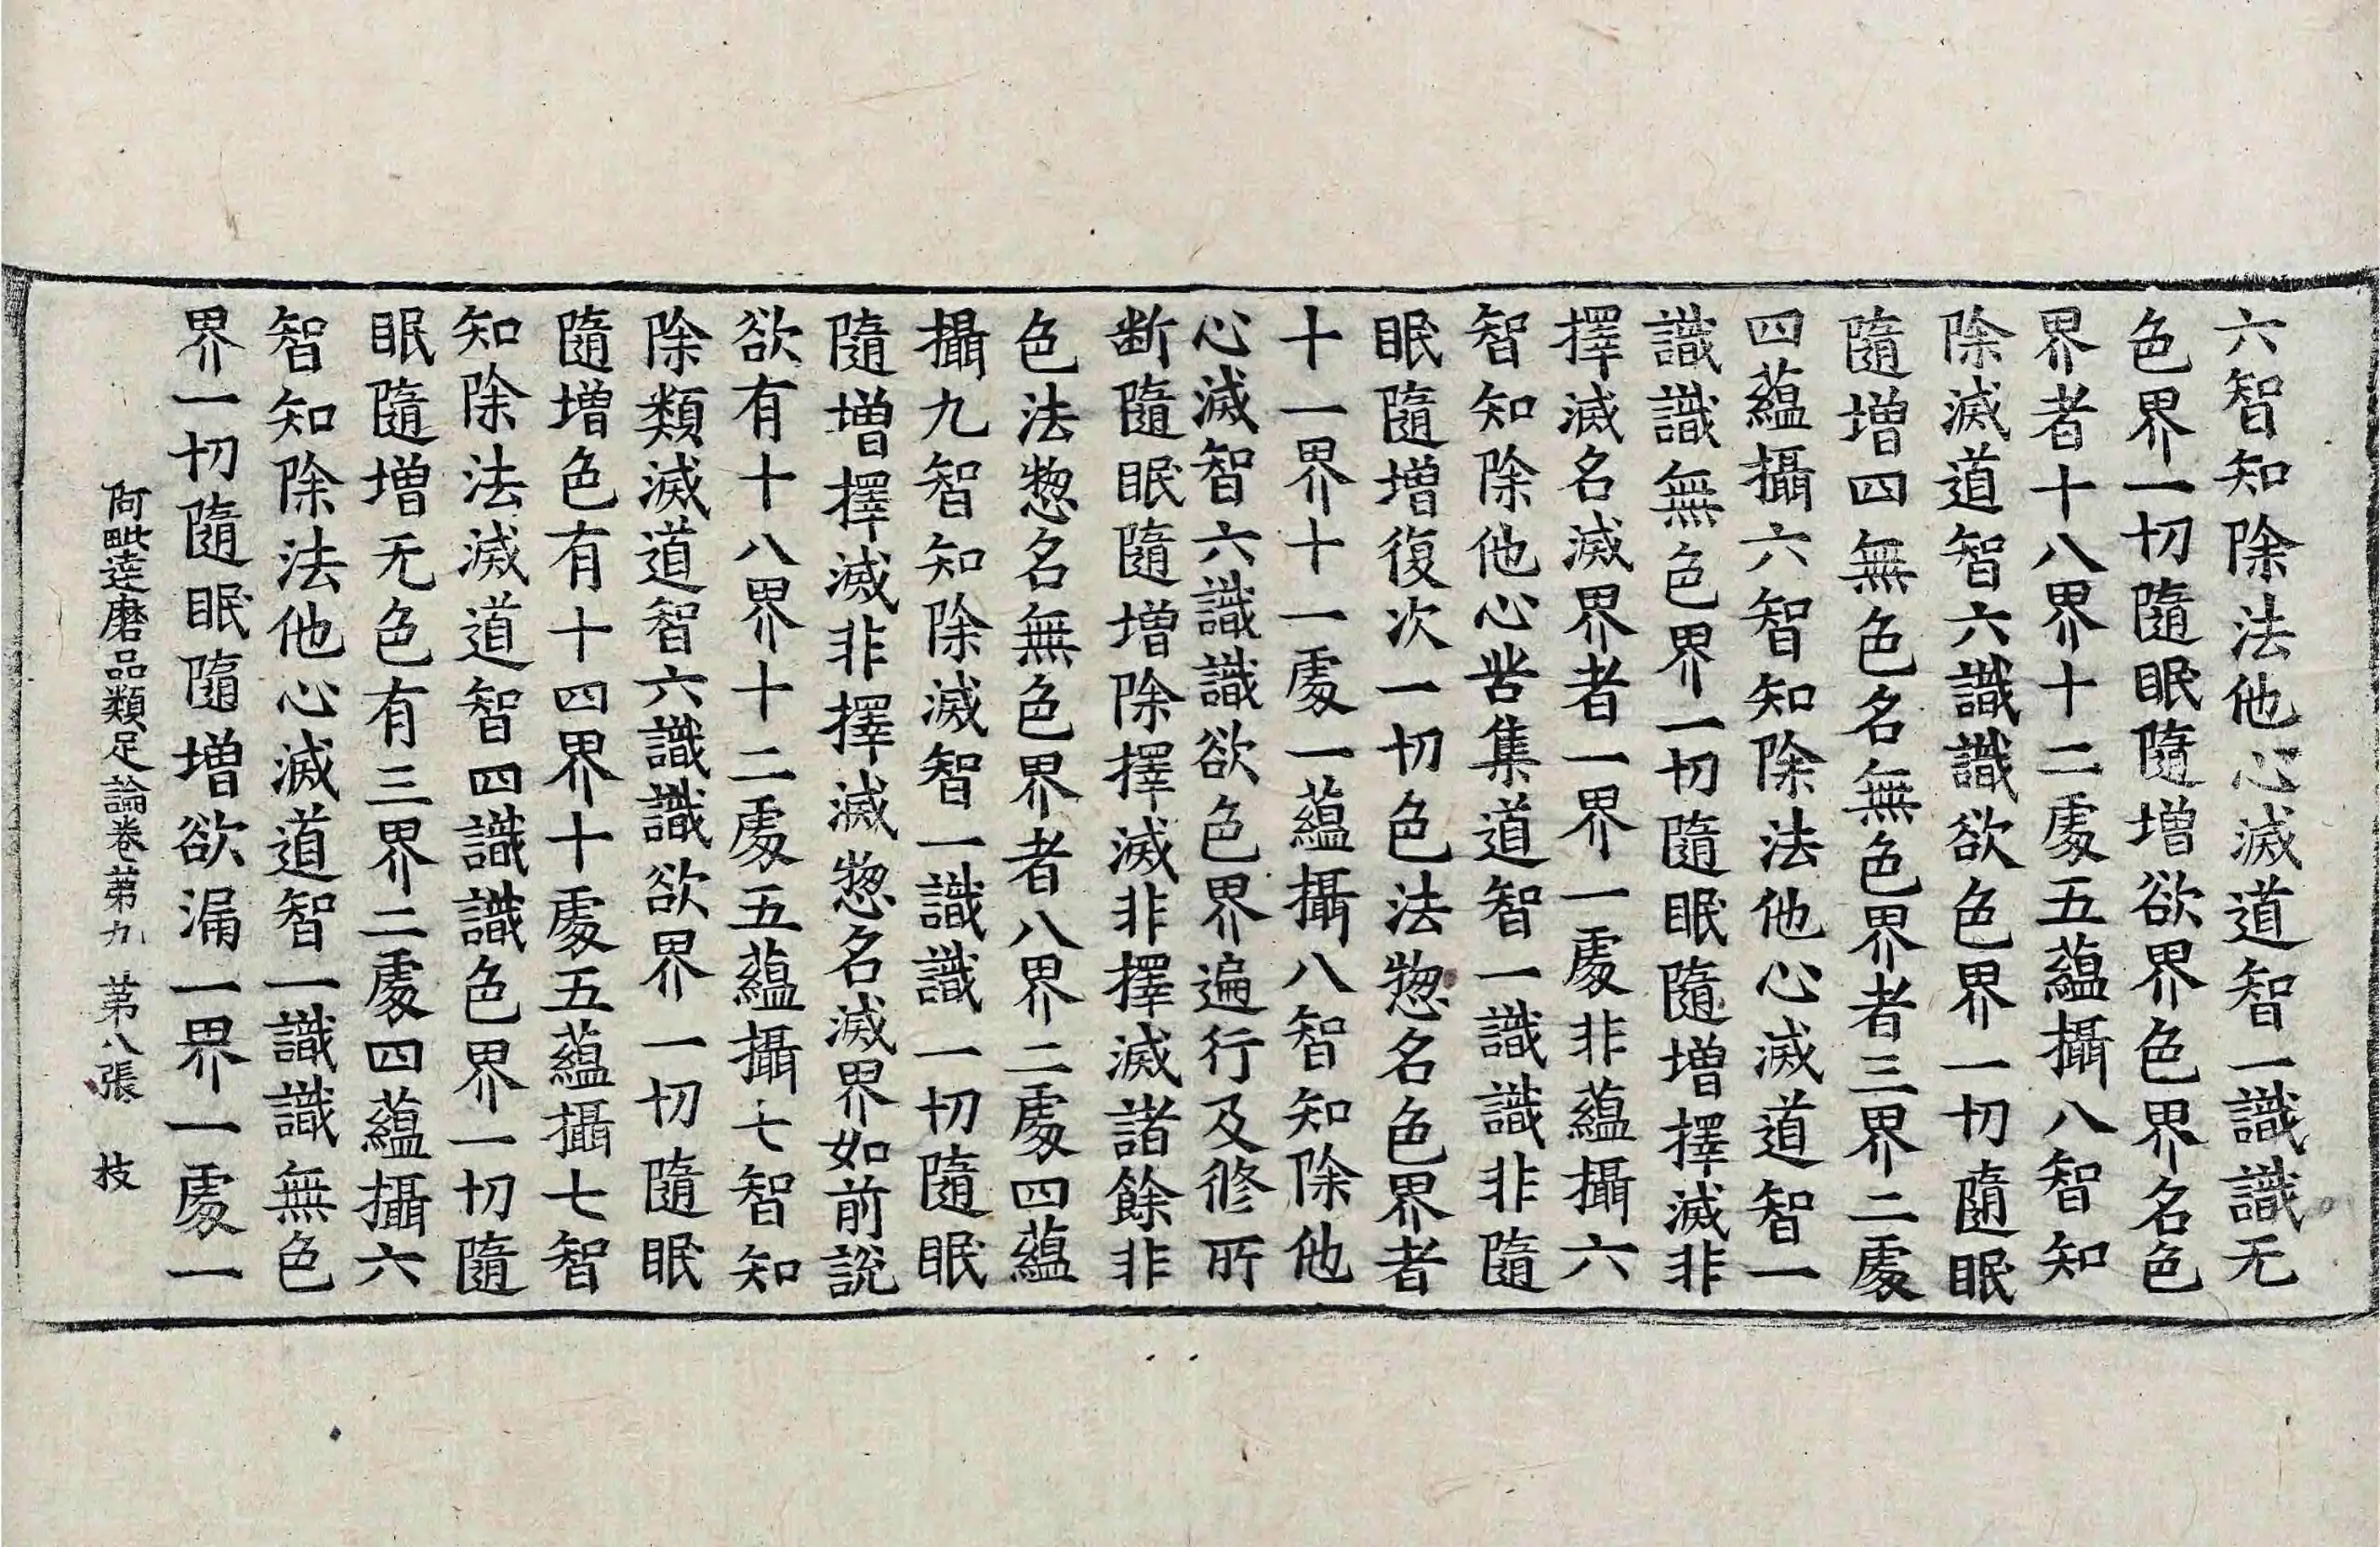 六智知除法他心滅道智一識識无
色界一切隨眠隨增欲界色界名色
界者十八界十二處五蘊攝八智知
除滅道智六識識欲色界一切隨眠
隨增四無色名無色界者三界二處
四蘊攝六智知除法他心滅道智一
識識無色界一切隨眠隨增擇滅非
擇滅名滅界者一界一處非蘊攝六
智知除他心苦集道智一識識非隨
眠隨增復次一切色法惣名色界者
十一界十一處一蘊攝八智知除他
心滅智六識識欲色界遍行及修所
断隨眠隨增除擇滅非擇滅諸餘非
色法惣名無色界者八界二處四蘊
攝九智知除滅智一識識一切隨眠
隨增擇滅非擇滅惣名滅界如前說
欲有十八界十二處五蘊攝七智知
除類滅道智六識識欲界一切隨眠
隨增色有十四界十處五蘊攝七智
知除法滅道智四識識色界一切隨
眠隨增无色有三界二處四蘊攝六
智知除法他心滅道智一識識無色
界一切隨眠隨增欲漏一界一處一
阿毗達磨品類足論卷第九 第八張 枝